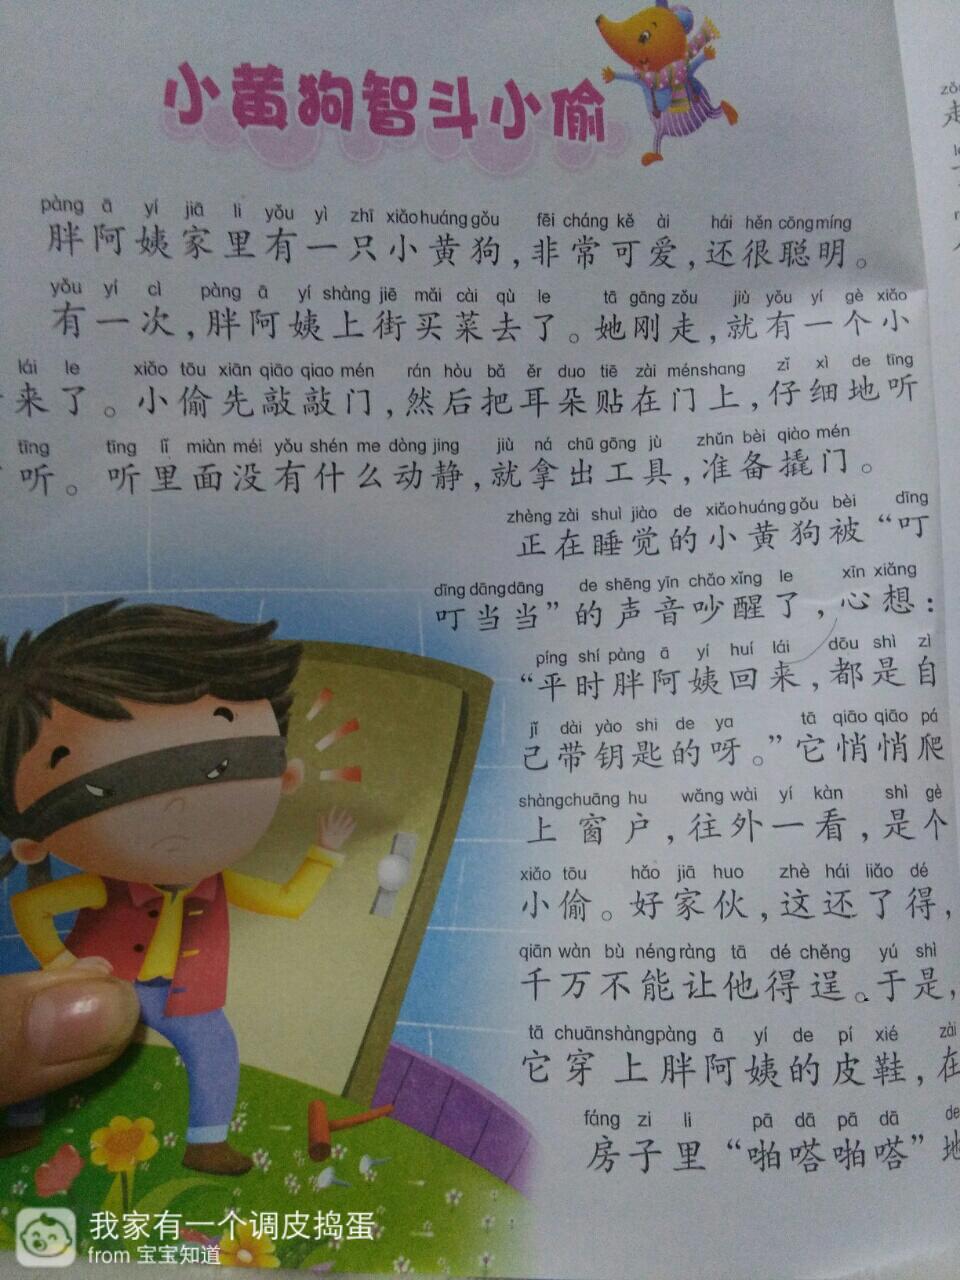 小黄狗智斗小偷
pàng ā yí jiā li yǒu yì zhī xiǎo huáng gǒu fēi cháng kě ài hái hěn cōng míng
胖阿姨家里有一只小黄狗,非常可爱,还很聪明。
yǒu yí cì pàng ā yí shàng jiē mǎi cài qù le tā gāng zǒu jiù yǒu yí gè xiǎo
有一次,胖阿姨上街买菜去了。她刚走,就有一个小
lái le xiǎo tōu xiān qiāo qiao mén rán hòu bǎ ěr duo tiē zài mén shang zǐ xì de tīng
来了。小偷先敲敲门,然后把耳朵贴在门上,仔细地听
tīng tīng lǐ miàn méi yǒu shén me dòng jing jiù ná chū gōng jù zhǔn bèi qiào mén
听。听里面没有什么动静,就拿出工具,准备撬门。
zhèng zài shuì jiào de xiǎo huáng gǒu bèi dīng
正在睡觉的小黄狗被“叮
dīng dāng dāng de shēng yīn chǎo xǐng le xīn xiǎng
叮当当”的声音吵醒了,心想:
píng shí pàng ā yí huí lái dōu shì zì
“平时胖阿姨回来,都是自
jǐ dài yào shi de ya tā qiāo qiāo pá
己带钥匙的呀。”它悄悄爬
shàng chuāng hu wǎng wài yí kàn shì gè
上窗户,往外一看,是个
xiǎo tōu hǎo jiā huo zhè hái liǎo dé
小偷。好家伙,这还了得,
qiān wàn bù néng ràng tā dé chěng yú shì
千万不能让他得逞。于是,
tā chuān shàng pàng ā yí de pí xié zài
它穿上胖阿姨的皮鞋,在
fáng zi li pā dā pā dā de
房子里“啪嗒啪嗒”地
我家有一个调皮捣蛋
from 宝宝知道